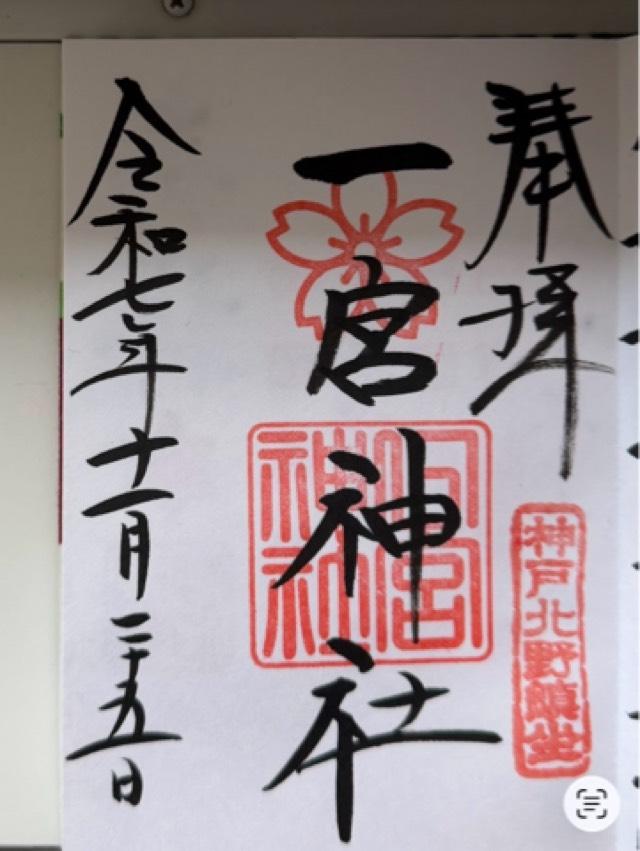 奉拝
神戸北野鎮坐
一宮神社
一宮神社
令和七年十一月二十五日